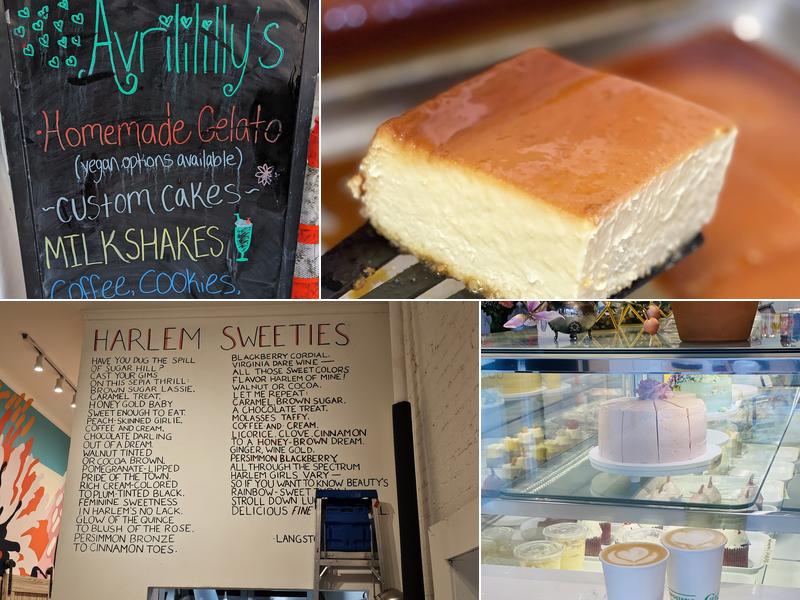 Avrilililly's
·Homemade Gelato
(vegan options available)
~custom cakes~
MILKSHAKES
Coffee, Cookies,
HARLEM SWEETIES
HAVE YOU DUG THE SPILL
OF SUGAR HILL?
CAST YOUR GIMS
ON THIS SEPIA THRILL:
BROWN SUGAR LASSIE,
CARAMEL TREAT,
HONEY GOLD BABY
SWEET ENOUGH TO EAT.
PEACH-SKINNED GIRLIE,
COFFEE AND CREAM,
CHOCOLATE DARLING
OUT OF A DREAM.
WALNUT TINTED
OR COCOA BROWN,
POMEGRANATE-LIPPED
PRIDE OF THE TOWN.
RICH CREAM-COLORED
TO PLUM-TINTED BLACK,
FEMININE SWEETNESS
IN HARLEM'S NO LACK.
GLOW OF THE QUINCE
TO BLUSH OF THE ROSE.
PERSIMMON BRONZE
TO CINNAMON TOES.
BLACKBERRY CORDIAL,
VIRGINIA DARE WINE—
ALL THOSE SWEET COLORS
FLAVOR HARLEM OF MINE!
WALNUT OR COCOA,
LET ME REPEAT:
CARAMEL, BROWN SUGAR,
A CHOCOLATE TREAT.
MOLASSES TAFFY,
COFFEE AND CREAM,
LICORICE, CLOVE, CINNAMON
TO A HONEY-BROWN DREAM.
GINGER, WINE GOLD,
PERSIMMON, BLACKBERRY,
ALL THROUGH THE SPECTRUM
HARLEM GIRLS VARY—
SO IF YOU WANT TO KNOW BEAUTY'S
RAINBOW-SWEET
STROLL DOWN LU
DELICIOUS, FINE L.
-LANGST